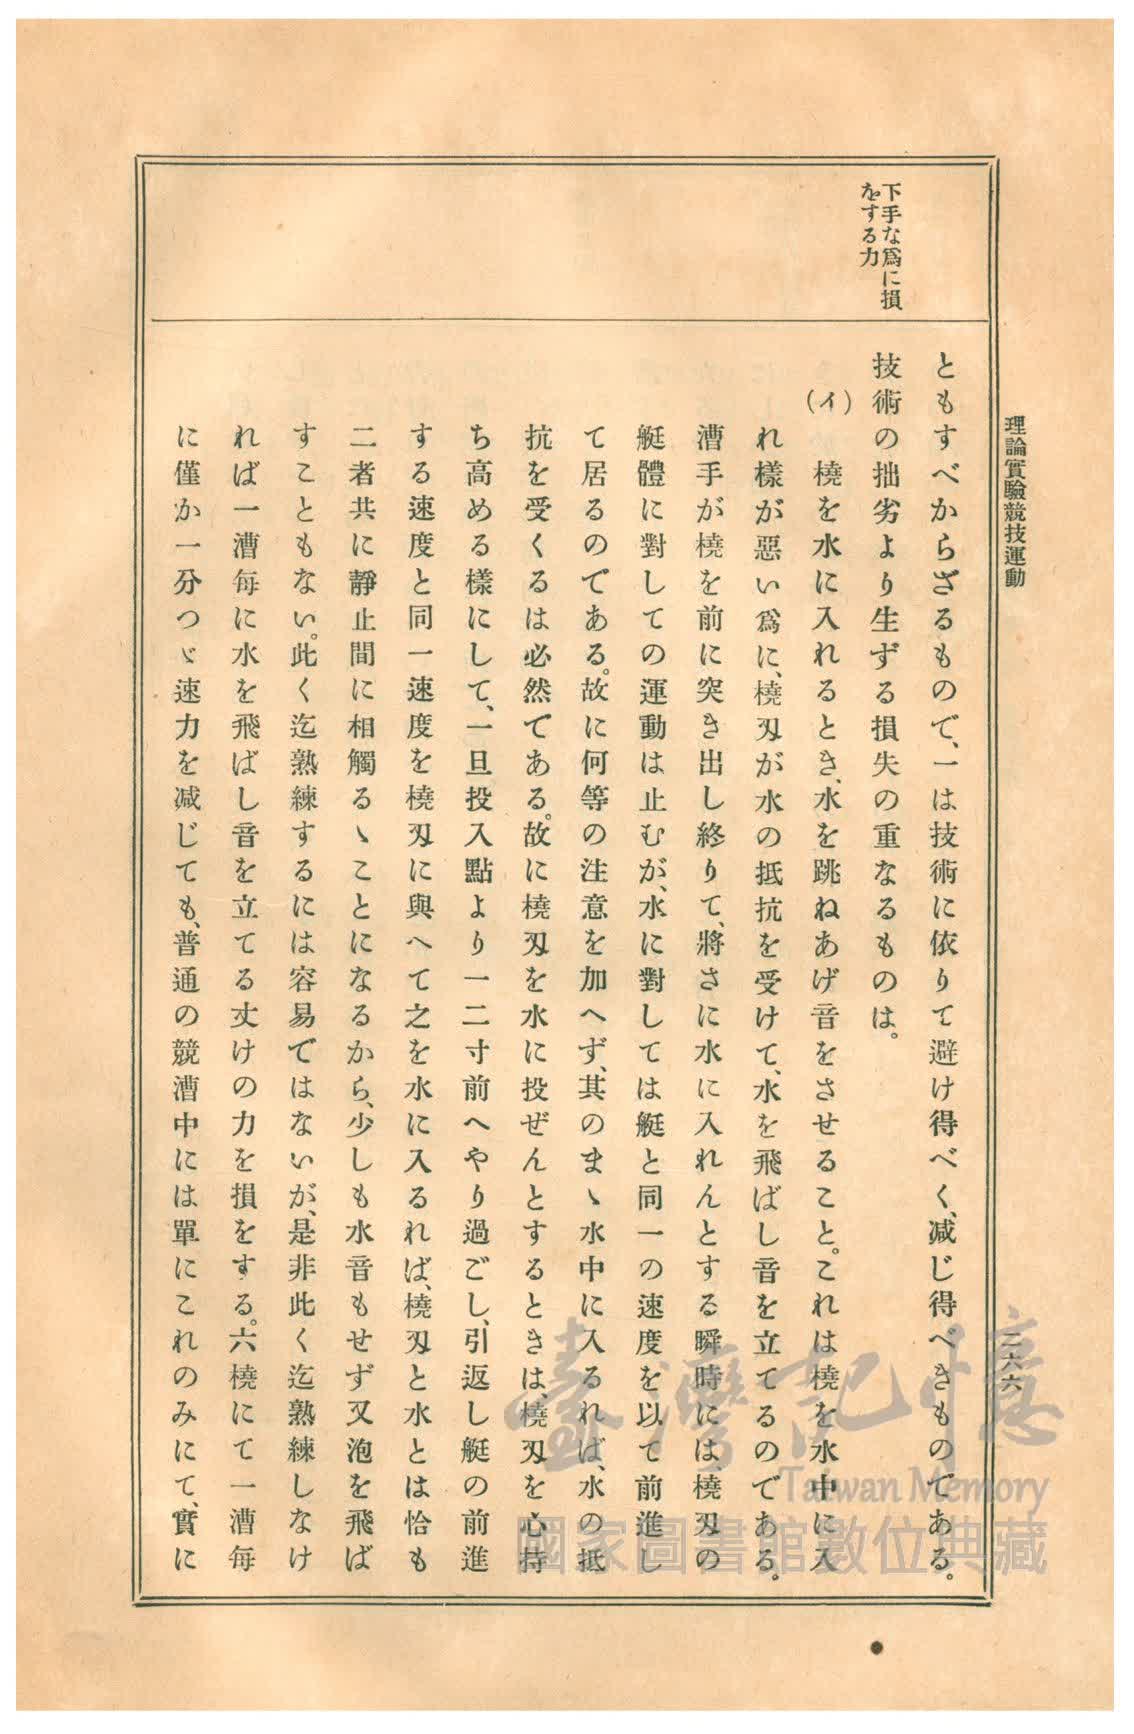 理論實驗競技運動
二六六
下手な爲に損
をする力
ともすべからざるもので、一は技術に依りて避け得べく、减じ得べきものである。
技術の拙劣より生ずる損失の重なるものは。
(イ) 橈を水に入れるとき、水を跳ねあげ音をさせること。これは橈を水中に入
れ樣が惡い爲に、橈刄が水の抵抗を受けて、水を飛ばし音を立てるのである。
漕手が橈を前に突き出し終りて、將さに水に入れんとする瞬時には、橈刄の
艇體に對しての運動は止むが、水に對しては艇と同一の速度を以て前進し
て居るのである。故に何等の注意を加へず、其のまゝ水中に入るれば、水の抵
抗を受くるは必然である。故に橈刄を水に投ぜんとするときは、橈刄を心持
ち高める樣にして、一旦投入點より一二寸前へやり過ごし、引返し艇の前進
する速度と同一速度を橈刄に與へて之を水に入るれば、橈刄と水とは恰も
二者共に靜止間に相觸るゝことになるから、少しも水音もせず又泡を飛ば
すこともない。此く迄熟練するには容易ではないが、是非此く迄熟練しなけ
れば一漕每に水を飛ばし音を立てる丈けの力を損をする。六橈にて一漕每
に僅か一分つゞ速力を减じても、普通の競漕中には單にこれのみにて、實に
臺灣記憶
Taiwan Memory
國家圖書館數位典藏